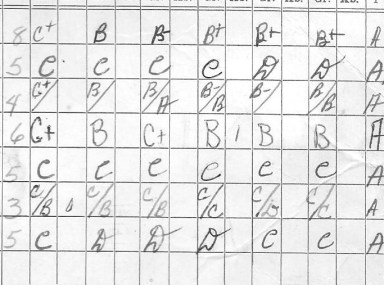 8 C+ B B- B+ B+ B+ A
5 C C C C D D A
4 C+/ B/ B/A B-/B B-/ B/B A
6 C+ B C+ B 1 B B A
5 C C C C C C A
3 C/B 0 C/B C/B C/C C/D C/C A
5 C D D D C C A